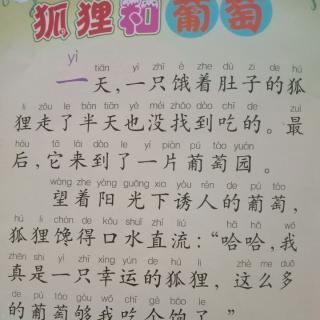 狐狸和葡萄
yì
tiān yì zhī è zhe dù zi de hú
一天,一只饿着肚子的狐
li zǒu le bàn tiān yě méi zhǎo dào chī de zuì
狸走了半天也没找到吃的。最
hòu tā lái dào le yí piàn pú táo yuán
后,它来到了一片葡萄园。
wàng zhe yáng guāng xià yòu rén de pú táo
望着阳光下诱人的葡萄,
hú li chán de kǒu shuǐ zhí liú hā hā wǒ
狐狸馋得口水直流:“哈哈,我
zhēn shì yì zhī xìng yùn de hú li zhè me duō
真是一只幸运的狐狸,这么多
de pú táo gòu wǒ chī gè bǎo le
的葡萄够我吃个饱了。”